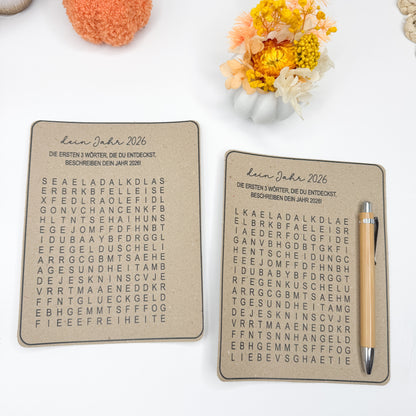 dein Jahr 2026
DIE ERSTEN 3 WÖRTER, DIE DU ENTDECKST,
BESCHREIBEN DEIN JAHR 2026!
SEAELADALKDLAS
ERBRKBFELLEISE
XFEDLRAOLEFIDL
GONVCHANCENKFB
HLTNTSEHAIHUNS
EGEJOMFFDFHNBH
IDUBAAYBFDRGGT
EFEGELDUSCHELI
ARRGCGBMTSAEHE
AGESUNDHEITAMB
DEJESKNINSCVJE
VRRTMAAENEDDKR
FFNTGLUECKGELD
EBHGEMMTSFFFOG
FIEEEFREIHEITE
dein Jahr 2026
DIE ERSTEN 3 WÖRTER, DIE DU ENTDECKST,
BESCHREIBEN DEIN JAHR 2026!
LKAELADALKDLAE
ELBRKBFAELEISR
IAEDERFOLGFIDE
GANVBHGDBTGKFI
HENTSCHEIDUNGC
EEEJOMFFDFHNBH
IDUBABYBFDRGGT
RFEGENKUSCHELU
ARRGCGBMTSAEHM
TGESUNDHEITAMG
DEJESKNINSCVJE
VRRTMAAENEDDKR
FFNTSNNHANGELD
EBHGEMMTSFFFOG
LIEBEVSGHAETIE